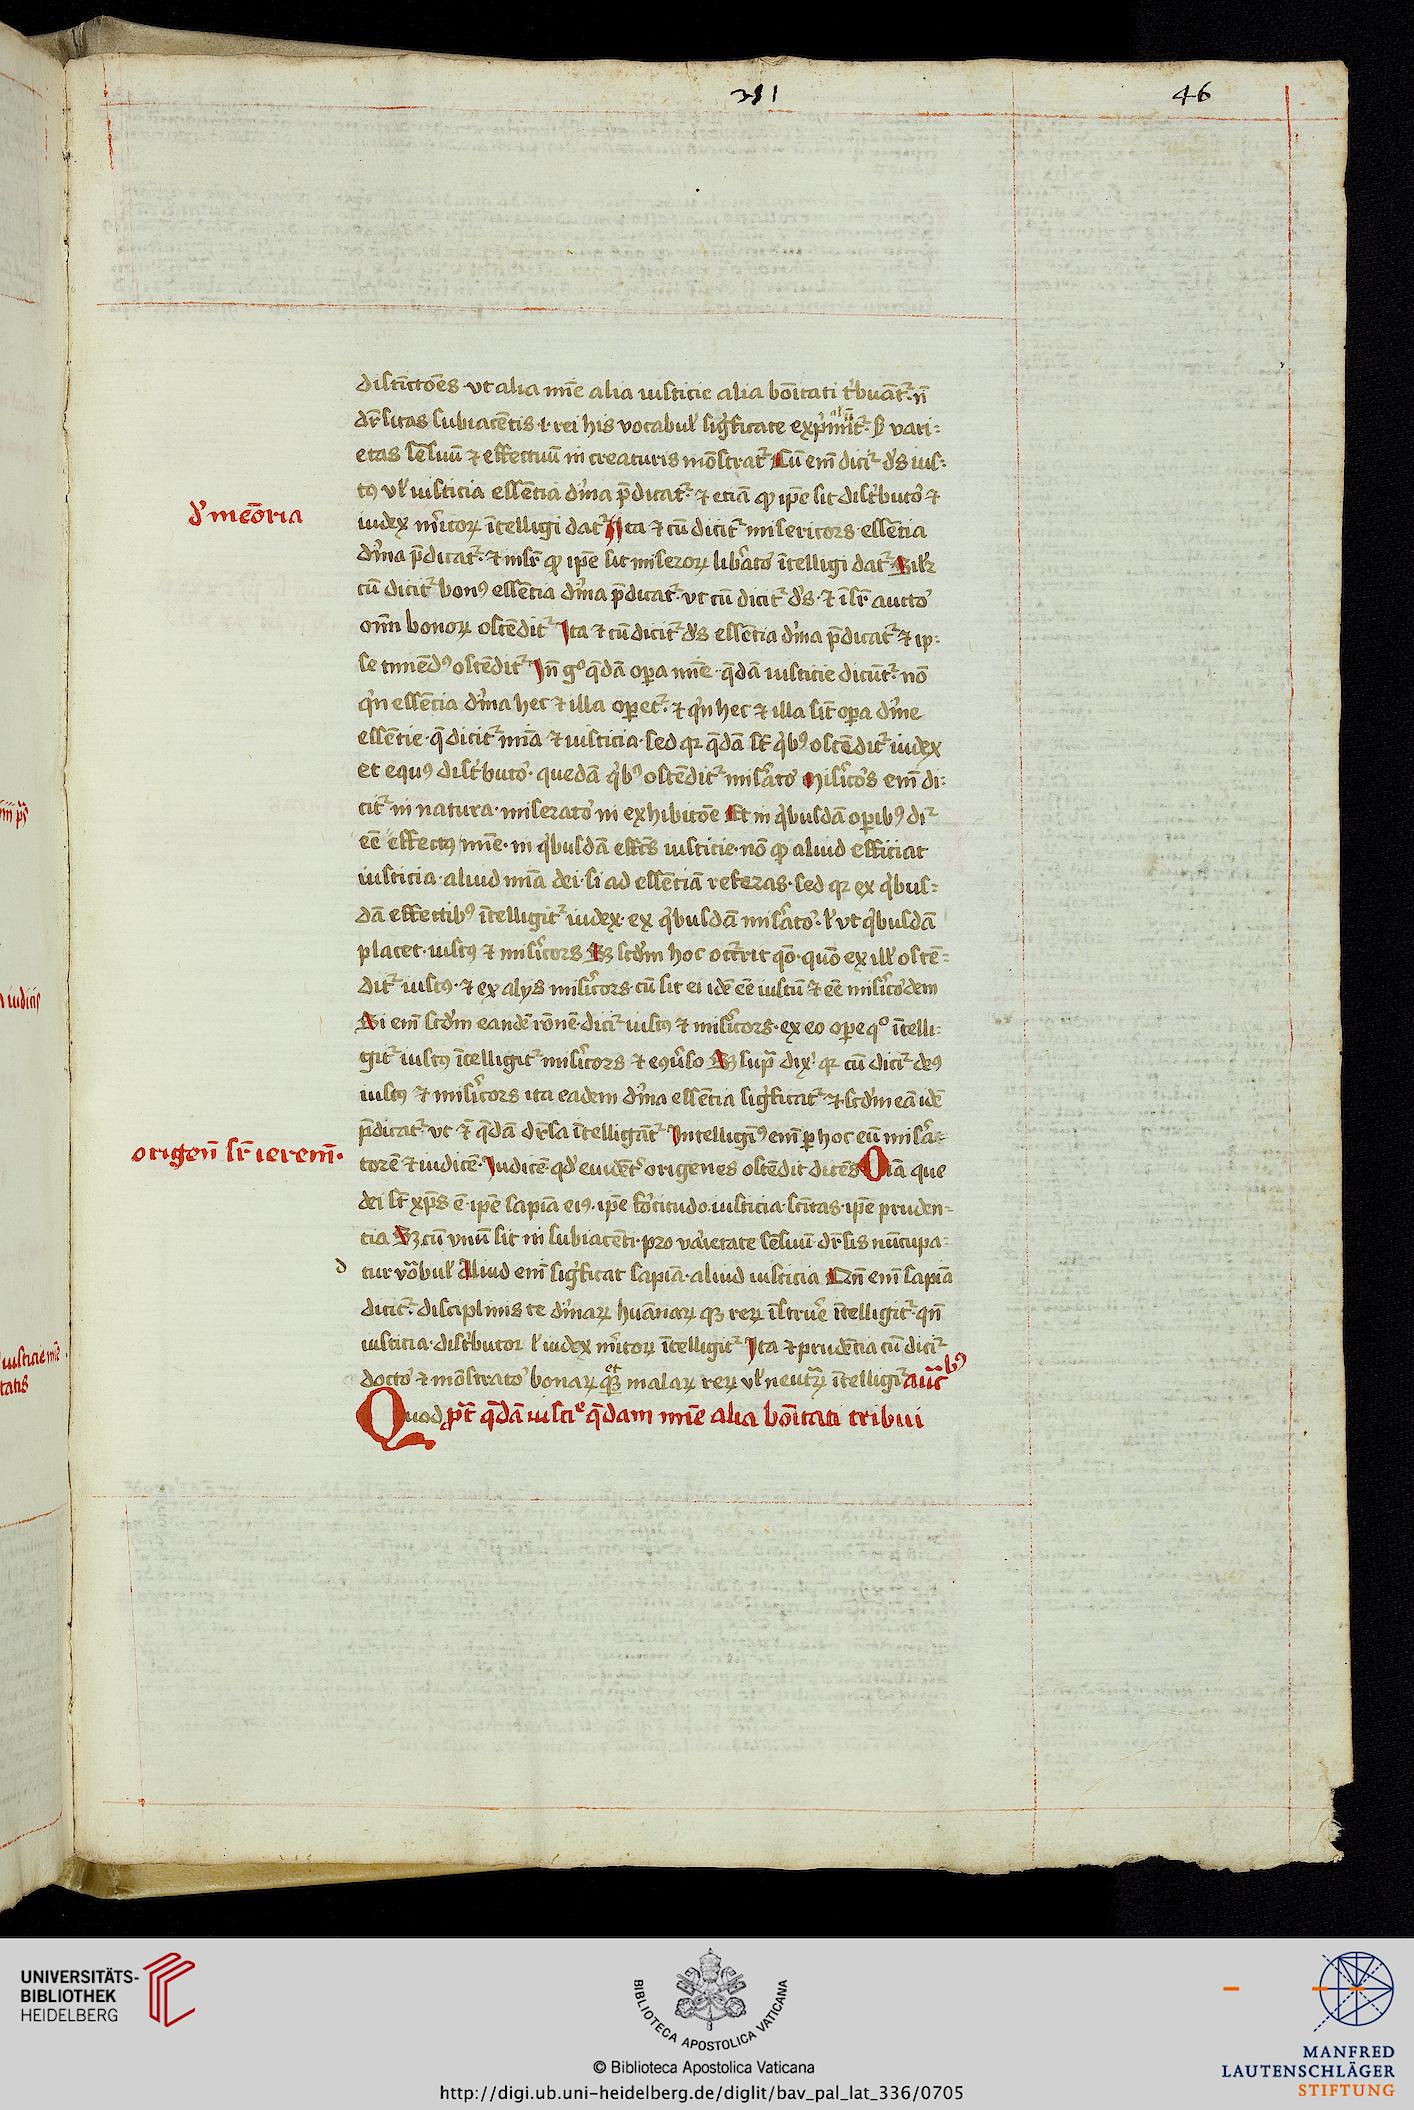 351
46
distinctōes ut alia mīe alia iusticie alia bōitati tͥbuāt᷑ n̄
dr̄sitas subiacētis i rei his vocabul᷑ sigͥficate expͥmit᷑ s᷑ vari⸗
etas sēsuū ⁊ effectuū in creaturis mōstrat᷑ Cū em̄ dicit᷑ ds̄ ius⸗
tꝰ vl᷑ iusticia essētia dīna p̄dicat᷑ ⁊ etiā ꝙ ip̄e sit distͥbutor ⁊
iudex mͥitoꝝ ītelligi dat᷑ Ita ⁊ cū dicit᷑ misericors essētia
dīna p̄dicat᷑ ⁊ insr̄ ꝙ ip̄e sit miseroꝝ libͥator ītelligi dat᷑ Silr̄
cū dicit᷑ bonꝰ essētia dīna p̄dicat᷑ ut cū dicit᷑ ds̄ ⁊ īsr̄ auctor
om̄ bonoꝝ ostēdit᷑ Ita ⁊ cū dicit᷑ ds̄ essētia dīna p̄dicat᷑ ⁊ ip⸗
se timēdꝰ ostēdit᷑ In̄ gͦ q̄dā oꝑa mīe q̄dā iusticie dicūt᷑ nō
qͥn essētia dīna hec ⁊ illa oꝑet᷑ ⁊ qͥn hec ⁊ illa sīt oꝑa dīne
essētie q̄ dicit᷑ mīa ⁊ iusticia sed qꝛ q̄dā sт̄ qͥbꝰ ostēdit᷑ iudex
et equꝰ distͥbutor quedā qͥbꝰ ostēdit᷑ misͥator Misͥicors em̄ di⸗
cit᷑ in natura miserator in exhibitōe Et in qͥbusdā oꝑibꝰ dī
eē effectꝰ mīe in qͥbusdā effc̄s iusticie nō ꝙ aliud efficiat
iusticia aliud mīa dei si ad essētiā referas sed qꝛ ex qͥbus⸗
dā effectibꝰ ītelligit᷑ iudex ex qͥbusdā misͥator l᷑ ut qͥbusdā
placet iustꝰ ⁊ misͥicors Sꝫ scd̄m hoc occr̄rit qō quō ex ill᷑ ostē⸗
dit᷑ iustꝰ ⁊ ex alijs misͥicors cū sit ei idē eē iustū ⁊ eē misͥicordem
Si em̄ scd̄m eandē rōnē dicit᷑ iustꝰ ⁊ misͥicors ex eo oꝑe qͦ ītelli⸗
git᷑ iustꝰ ītelligit᷑ misͥicors ⁊ eqͦuerso Sꝫ supͣ dixͥ qꝛ cū dicit᷑ deꝰ
iustꝰ ⁊ misͥicors ita eadem dīna essētia sigͥficat᷑ ⁊ scd̄m eā idē
p̄dicat᷑ ut ⁊ q̄dā dr̄sa ītelligāt᷑ Intelligimꝰ em̄ ꝑ hoc eū misͥa⸗
torē ⁊ iudicē Iudicē qd̄ euidēt᷑ origenes ostēdit dicēs Oīa que
dei sт̄ xp̄s ē ip̄e sapīa eiꝰ ip̄e fortitudo iusticia sc̄itas ip̄e pruden⸗
tia Sꝫ cū unū sit in subiacēti pro varietate sēsuū dr̄sis nūcupa⸗
tur vōbul᷑ Aliud em̄ sigͥficat sapīa aliud iusticia Qn̄ em̄ sapīa
dicit᷑ disciplinis te dīnaꝝ huānaꝝ qꝫ reꝝ īstruē ītelligit᷑ qn̄
iusticia distͥbutor l᷑ iudex mͥitoꝝ ītelligit᷑ Ita ⁊ prudētia cū dicit᷑
doctor ⁊ mōstrator bonaꝝ qꝫ et malaꝝ reꝝ vl᷑ neutͣꝝ ītelligit᷑ auc̄bꝰ
Quod pт̄ q̄dā iusticͤ q̄dam mīe alia bōitati tribui
d᷑ meōria
origen̄ sr̄ ierem̄
d
UNIVERSITÄTS-
BIBLIOTHEK
HEIDELBERG
BIBLIOTECA APOSTOLICA VATICANA
© Biblioteca Apostolica Vaticana
http://digi.ub.uni-heidelberg.de/diglit/bav_pal_lat_336/0705
MANFRED
LAUTENSCHLÄGER
STIFTUNG